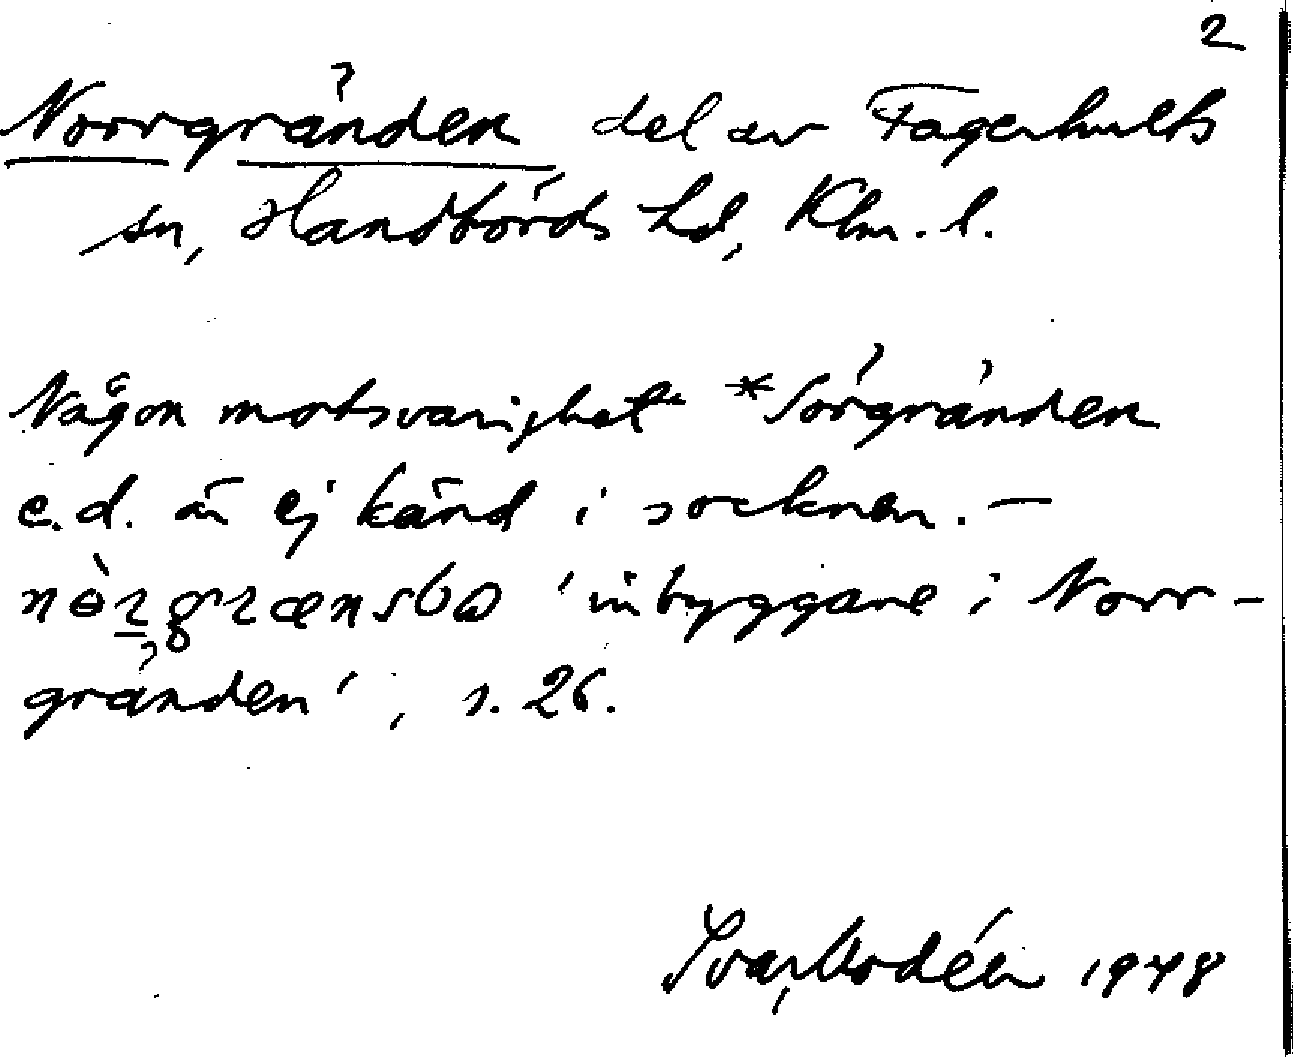 2
Norrgränden del av Fagerhults
sn, Handbörds hd, Klm. l.
Någon motsvarighet *Sörgränden
e.d. är ej känd i socknen. —
'inbyggare i Norr-
gränden', s. 26.
1948